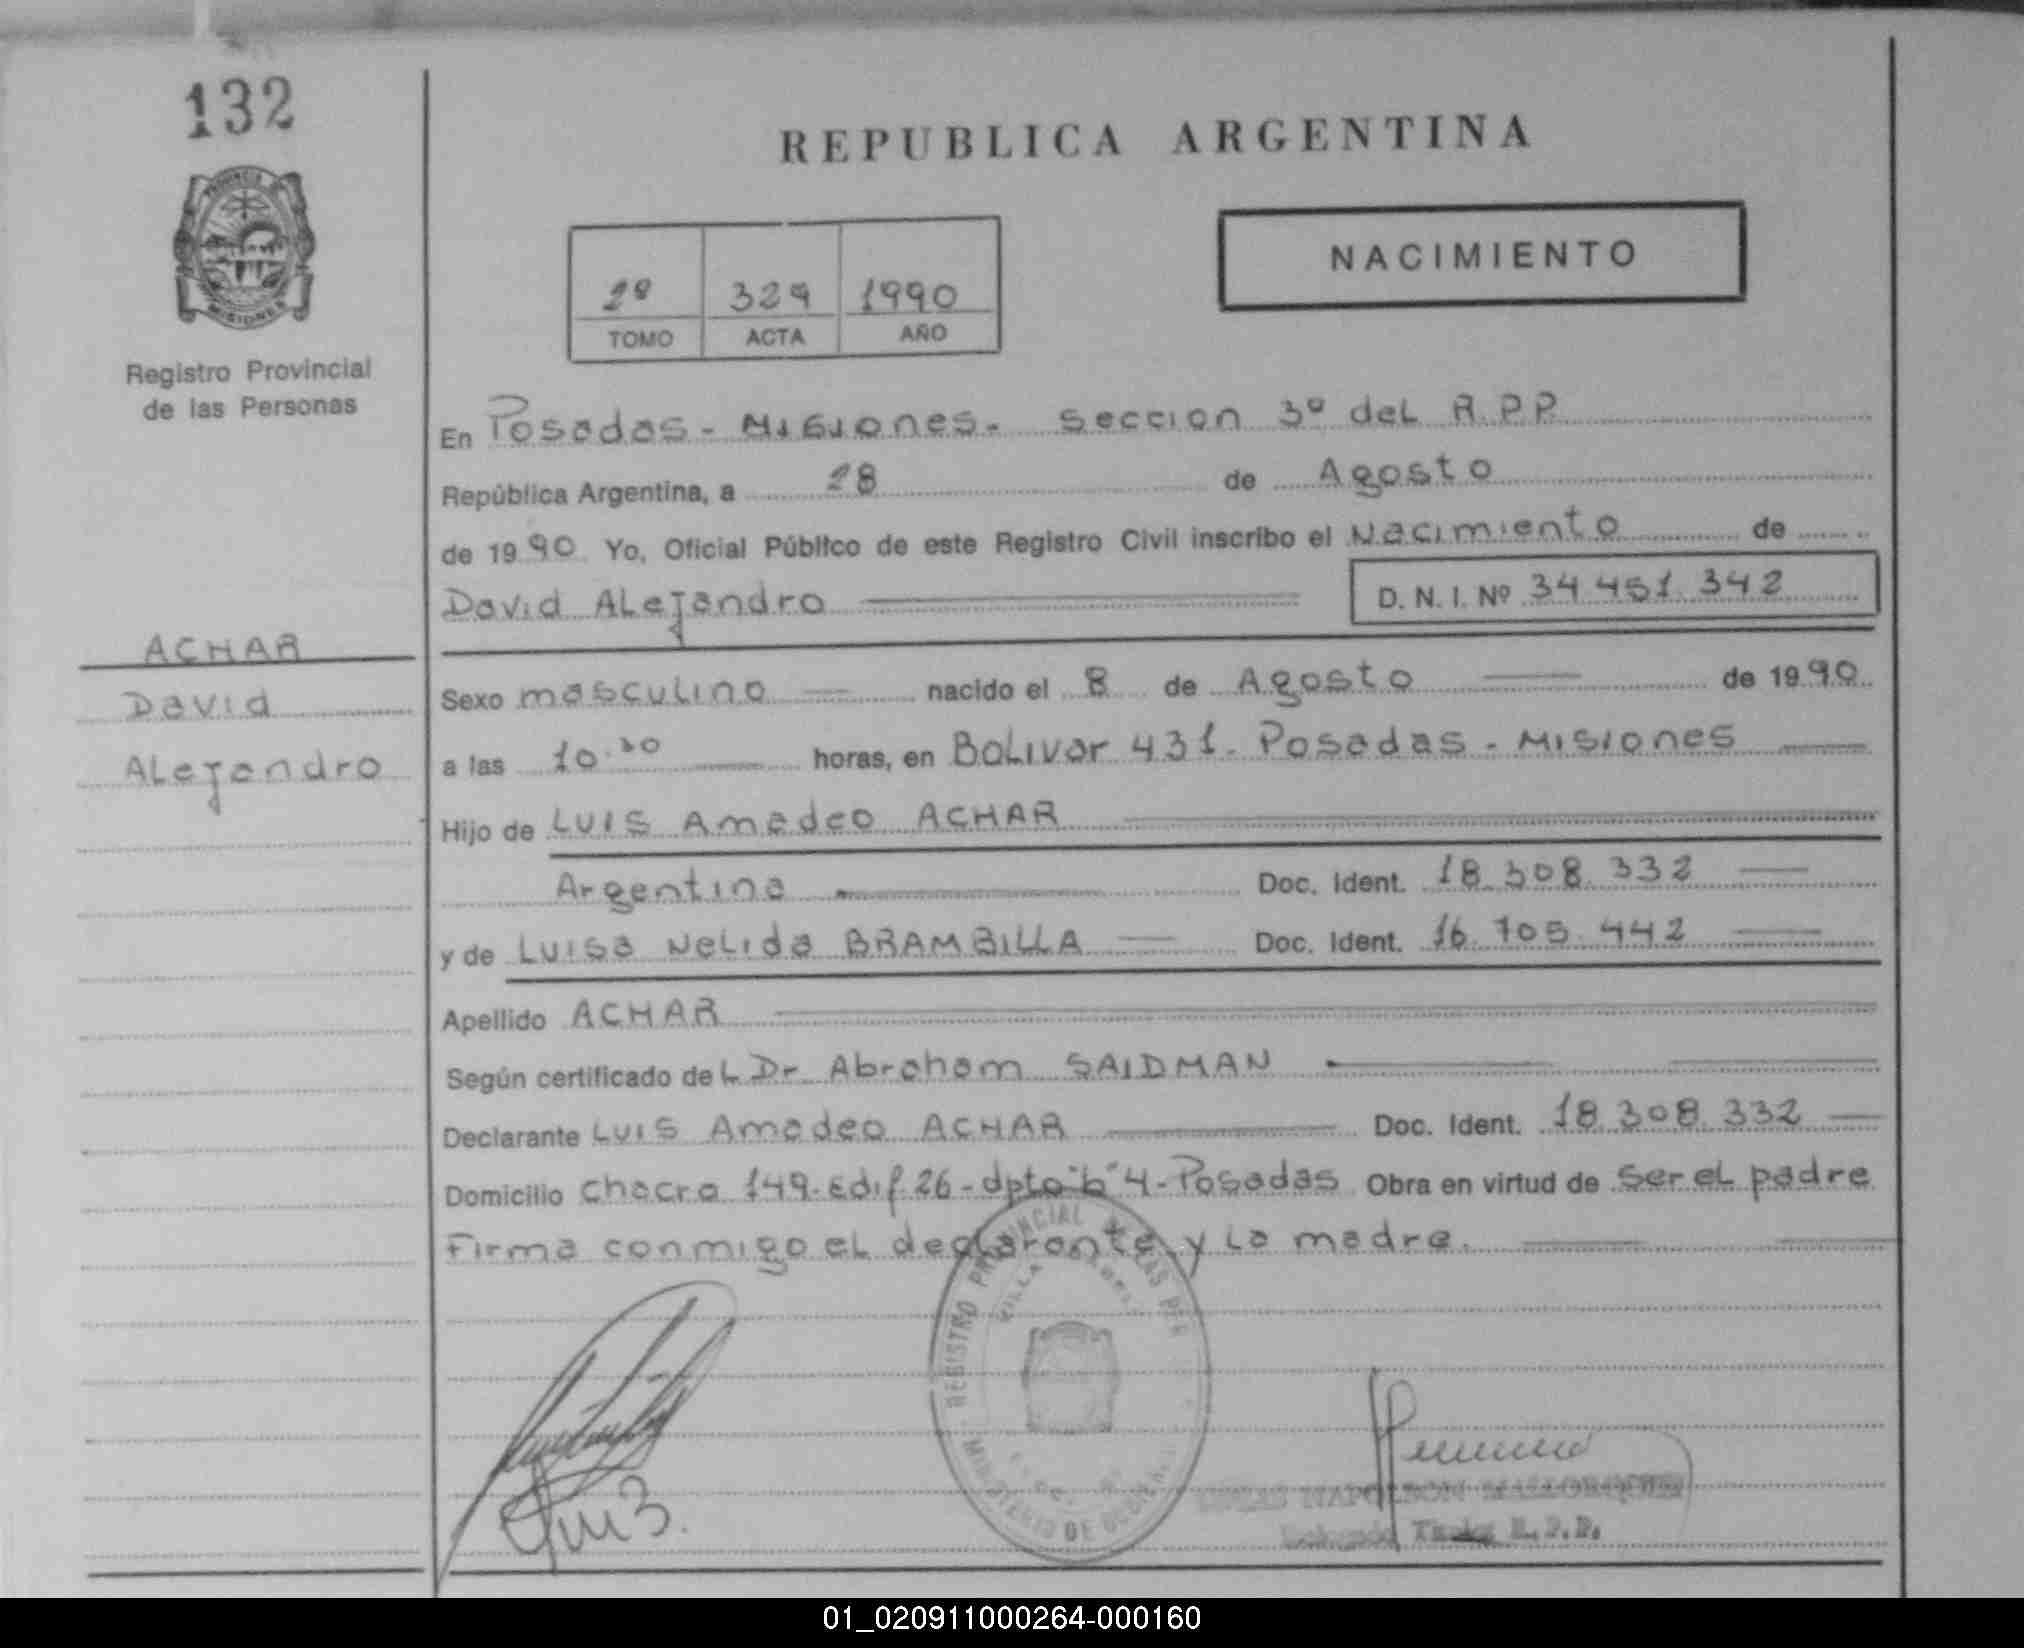 132
PROVINCIA DE
MISIONES
Registro Provincial
de las Personas
ACHAR
David
Alejandro
REPUBLICA ARGENTINA
NACIMIENTO
2º 329 1990
TOMO ACTA AÑO
En Posadas - Misiones. Seccion 3º del R.P.P
República Argentina, a 28 de Agosto
de 1990 Yo, Oficial Público de este Registro Civil inscribo el Nacimiento de
David Alejandro D. N. I. Nº 34 451 342
Sexo masculino nacido el 8 de Agosto de 1990
a las 10.30 horas, en Bolivar 431. Posadas - Misiones
Hijo de Luis Amadeo ACHAR
Argentina Doc. Ident. 18.308.332
y de Luisa Nelida BRAMBILLA Doc. Ident. 16.705.442
Apellido ACHAR
Según certificado del Dr Abraham SAIDMAN
Declarante Luis Amadeo ACHAR Doc. Ident. 18.308.332
Domicilio chacra 149- Edif. 26 - dpto "b" 4 - Posadas Obra en virtud de ser el padre
Firma conmigo el declarante y la madre.
REGISTRO PROVINCIAL DE LAS PER
MINISTERIO DE GOBIER
NAPOLEON
Titular R.P.P.
01_020911000264-000160